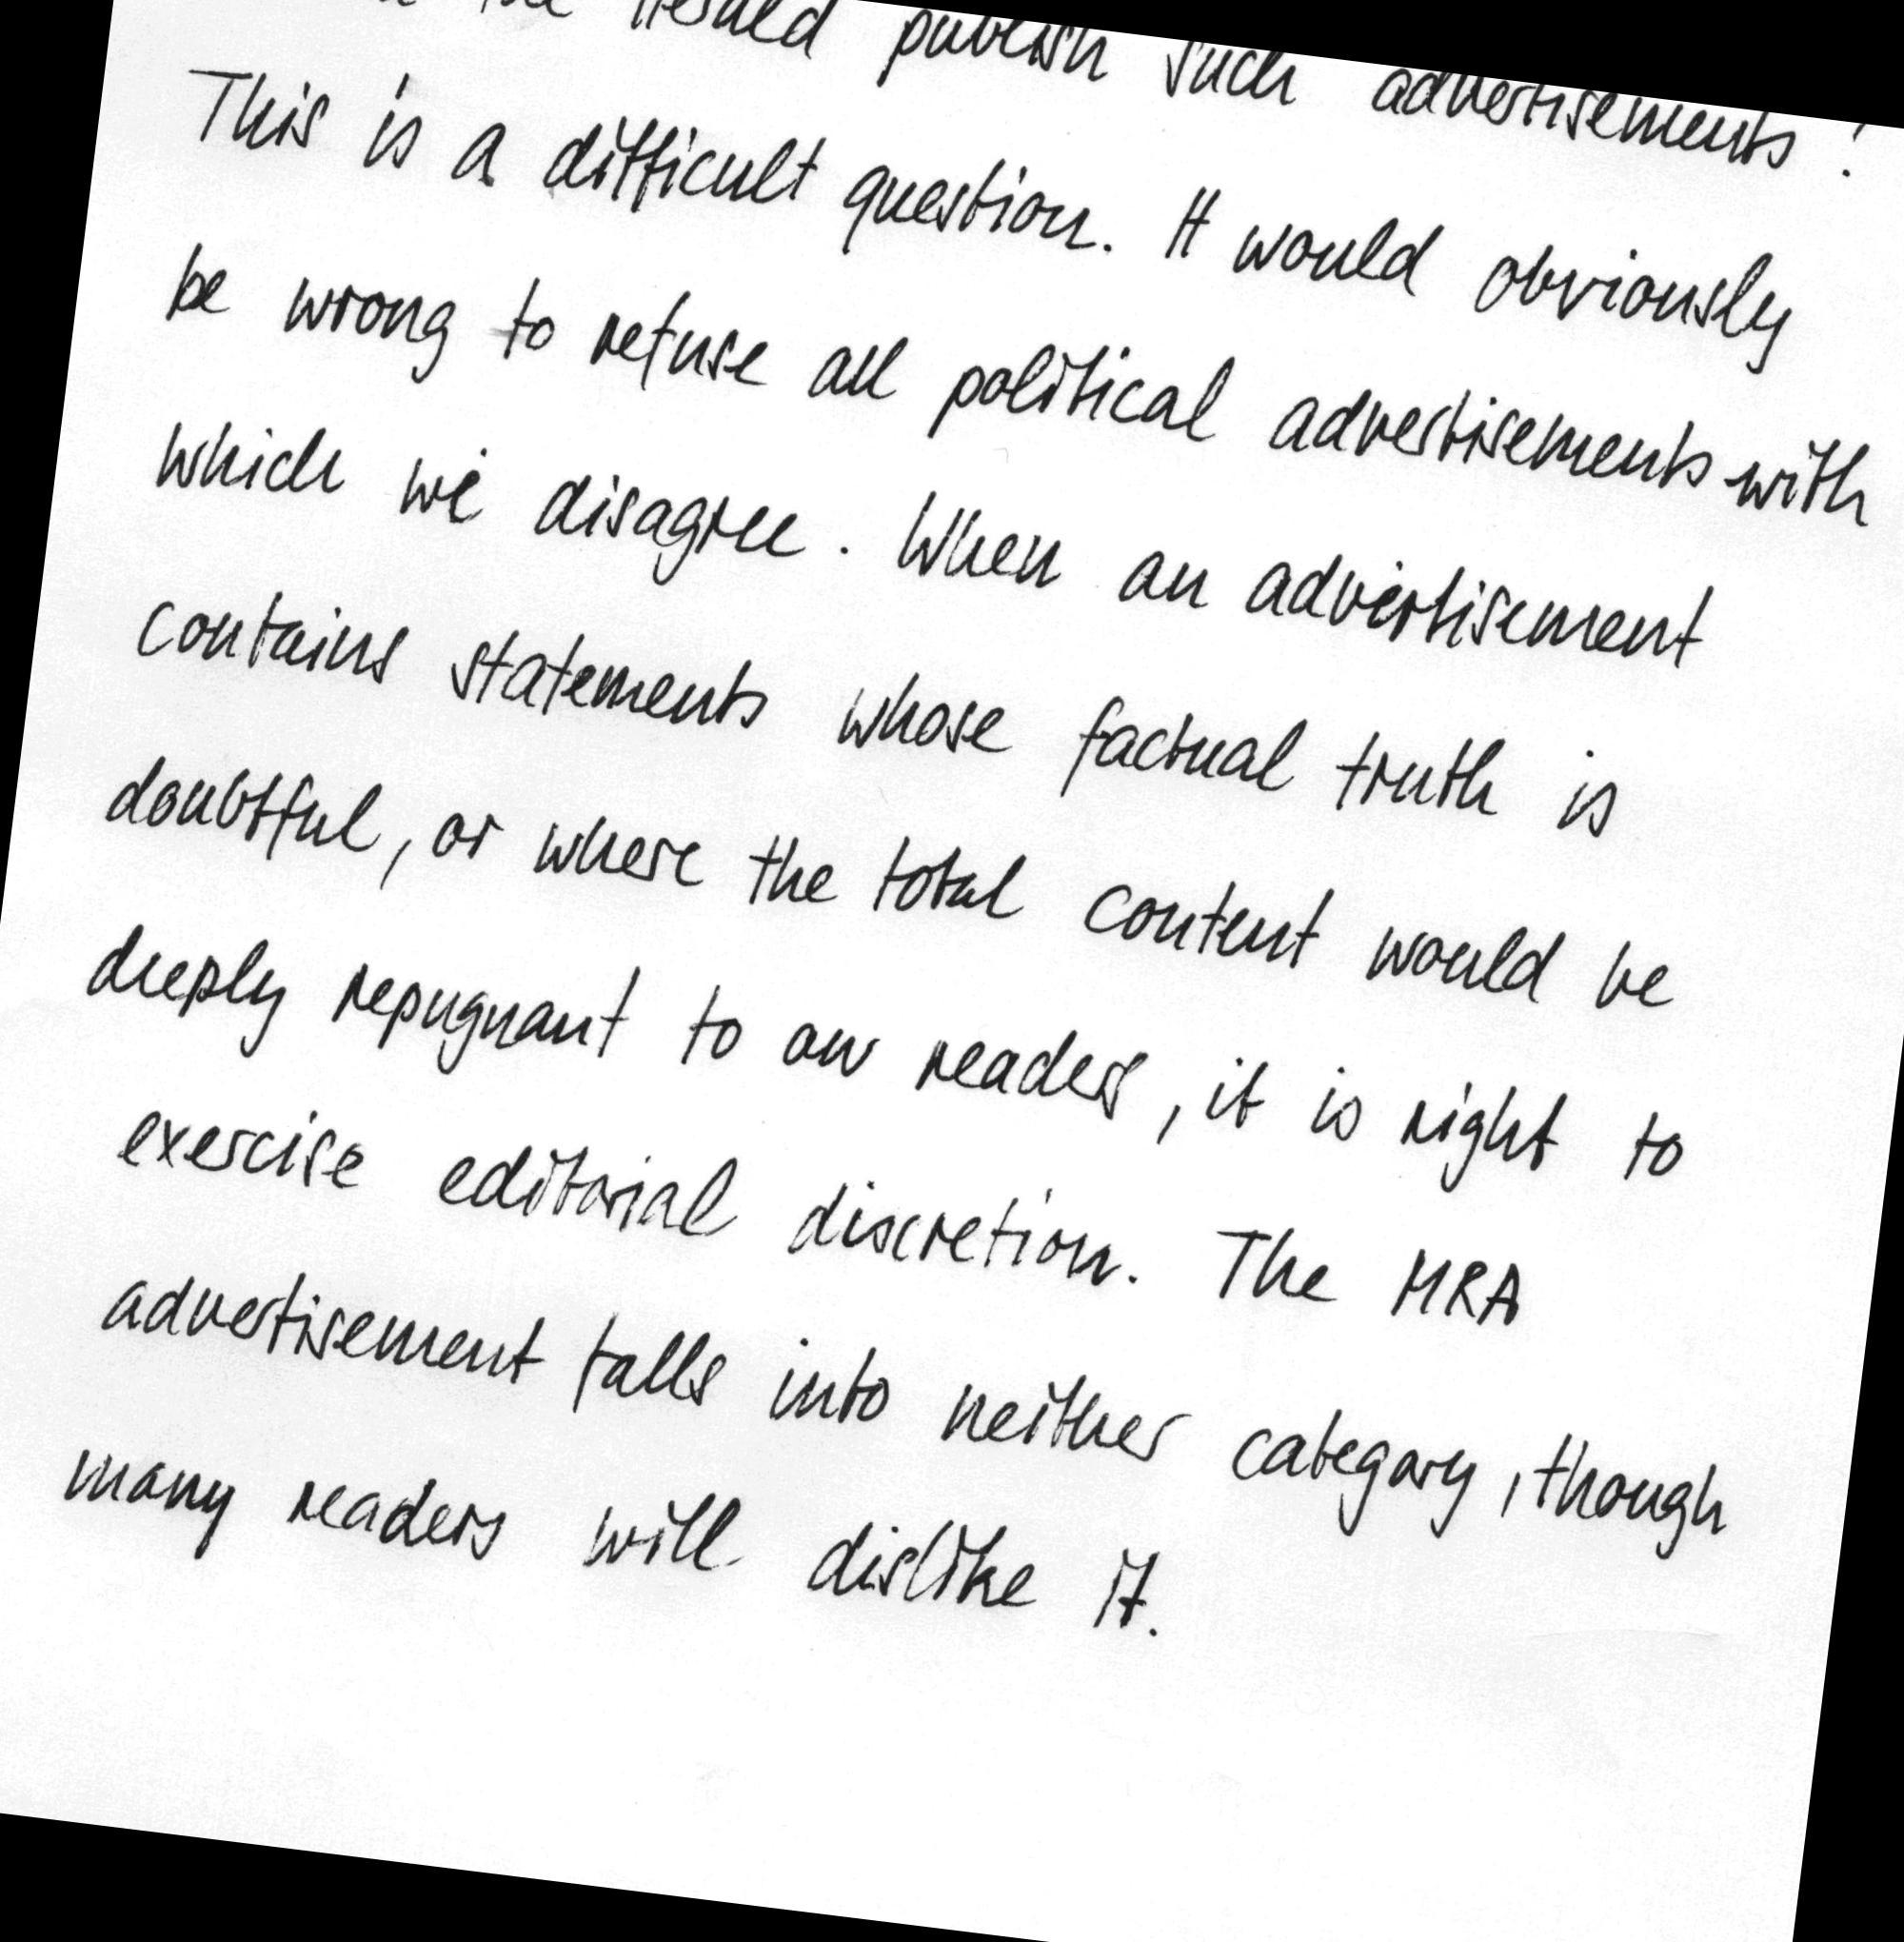 the Herald publish such advertisements?
This is a difficult question. It would obviously
be wrong to refuse all political advertisements with
which we disagree. When an advertisement
contains statements whose factual truth is
doubtful, or where the total content would be
deeply repugnant to our readers, it is right to
exercise editorial discretion. The MRA
advertisement falls into neither category, though
many readers will dislike it.